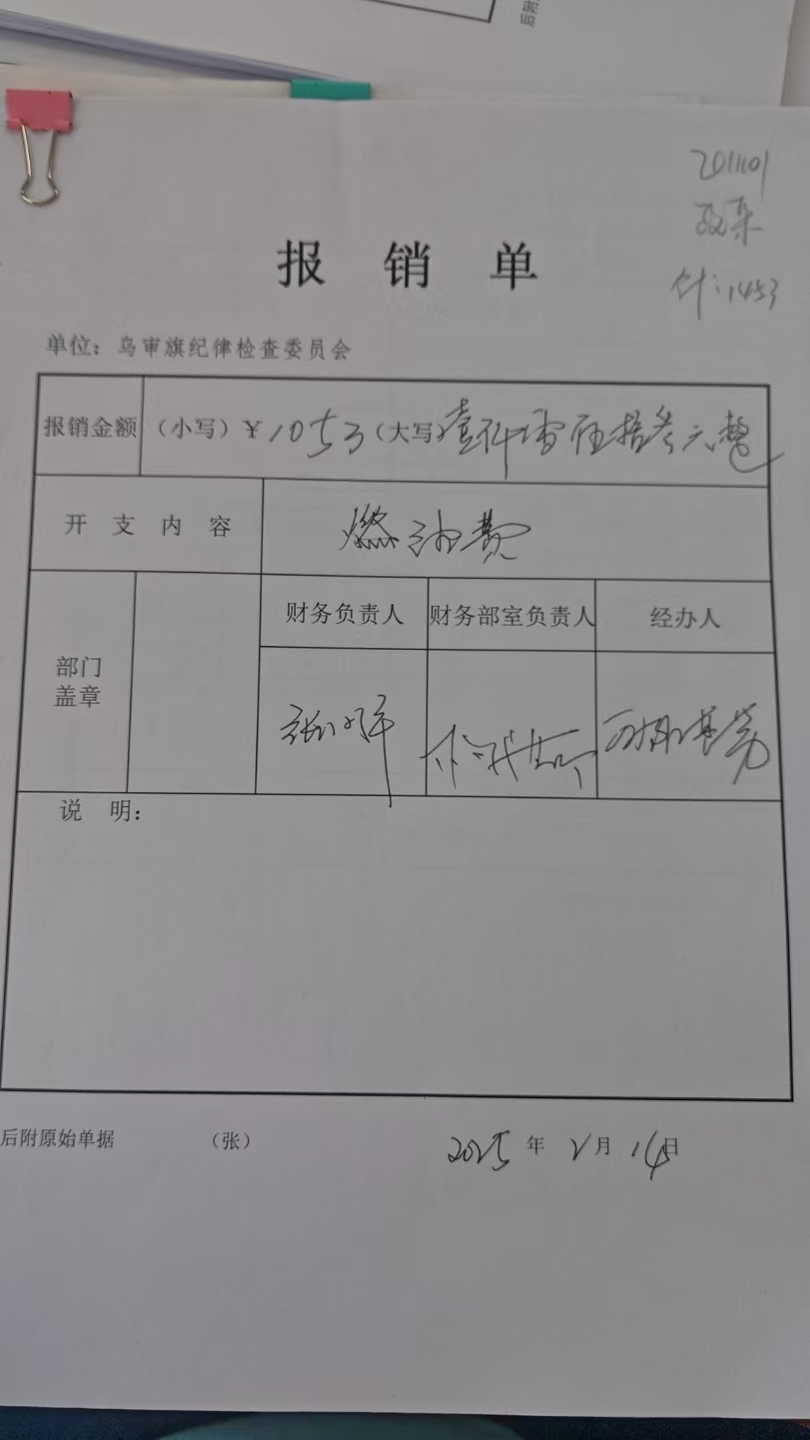 后附
2011101
政采
付:1453
报 销 单
单位：乌审旗纪律检查委员会
报销金额 （小写）￥1053（大写）壹仟零伍拾叁元整
开 支 内 容 燃油费
财务负责人 财务部室负责人 经办人
部门
盖章
说 明：
后附原始单据 （张） 2025 年 2月 14日